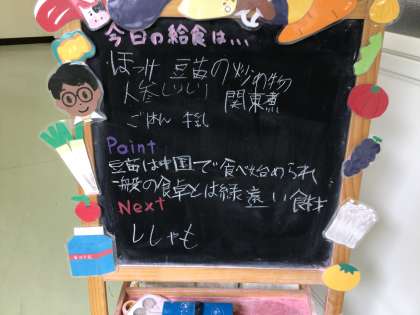 今日の給食は…
ほっけ 豆苗の炒め物
人参しりしり 関東煮
ごはん 牛乳
Point
豆苗は中国で食べ始められ
一般の食卓とは縁遠い食材
Next
ししゃも